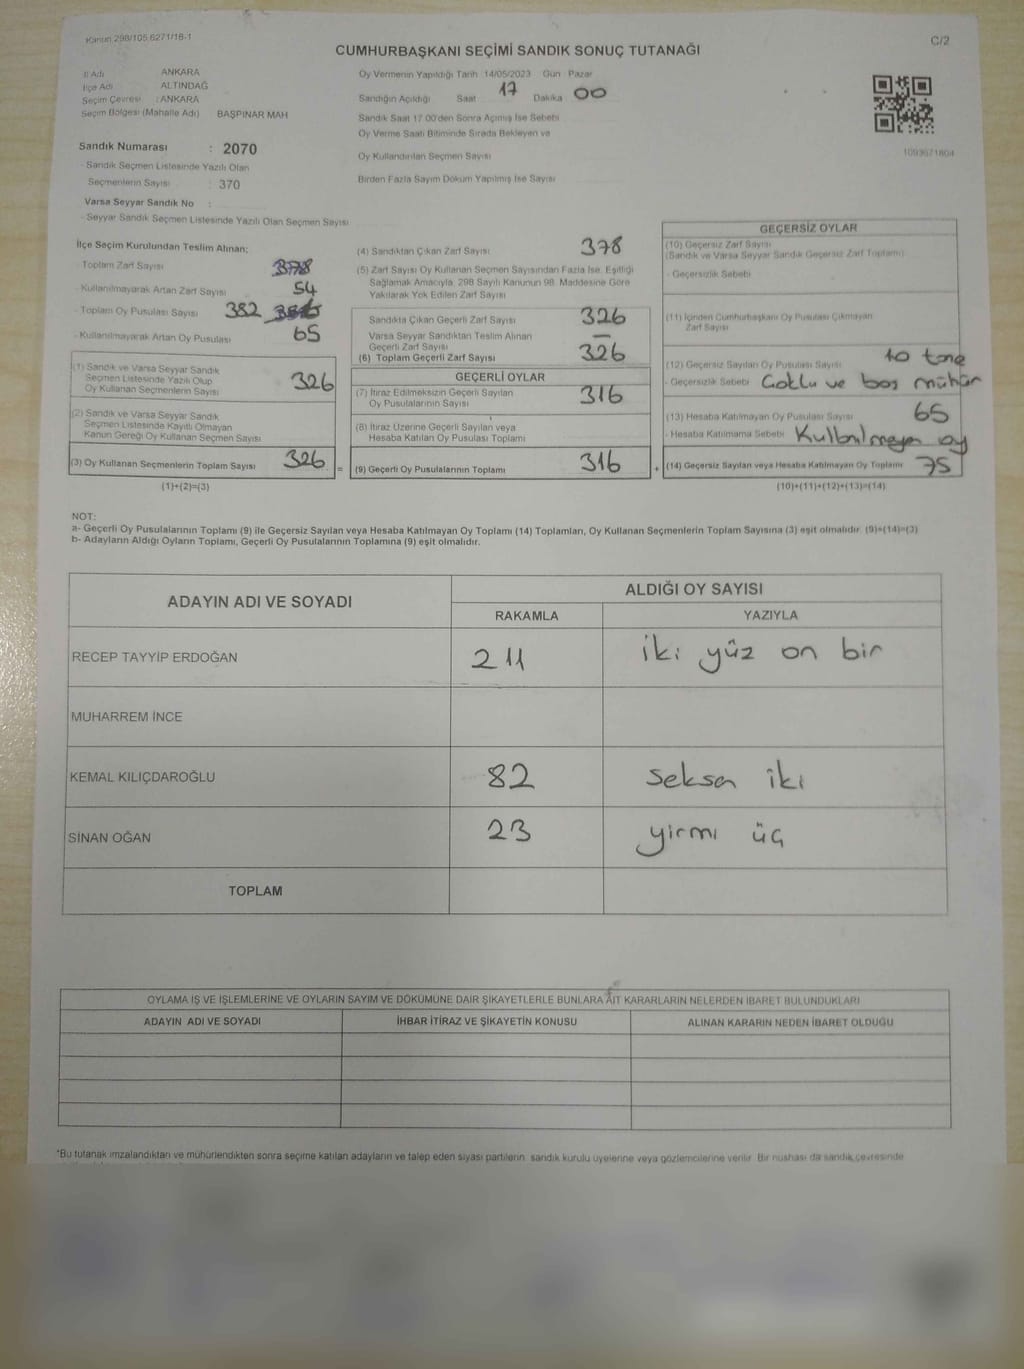 Kanun 298/105,6271/18-1
C/2
CUMHURBAŞKANI SEÇİMİ SANDIK SONUÇ TUTANAĞI
İl Adı ANKARA
İlçe Adı ALTINDAĞ
Seçim Çevresi : ANKARA
Seçim Bölgesi (Mahalle Adı) BAŞPINAR MAH
Sandık Numarası : 2070
- Sandık Seçmen Listesinde Yazılı Olan
Seçmenlerin Sayısı : 370
Varsa Seyyar Sandık No :
- Seyyar Sandık Seçmen Listesinde Yazılı Olan Seçmen Sayısı
Oy Vermenin Yapıldığı Tarih 14/05/2023 Gün Pazar
Sandığın Açıldığı Saat 17 Dakika 00
Sandık Saat 17:00'den Sonra Açılmış İse Sebebi
Oy Verme Saati Bitiminde Sırada Bekleyen ve
Oy Kullandırılan Seçmen Sayısı
Birden Fazla Sayım Döküm Yapılmış İse Sayısı
1093671804
İlçe Seçim Kurulundan Teslim Alınan;
- Toplam Zarf Sayısı 378
- Kullanılmayarak Artan Zarf Sayısı 54
- Toplam Oy Pusulası Sayısı 382
- Kullanılmayarak Artan Oy Pusulası 65
(1) Sandık ve Varsa Seyyar Sandık
Seçmen Listesinde Yazılı Olup
Oy Kullanan Seçmenlerin Sayısı 326
(2) Sandık ve Varsa Seyyar Sandık
Seçmen Listesinde Kayıtlı Olmayan
Kanun Gereği Oy Kullanan Seçmen Sayısı
(3) Oy Kullanan Seçmenlerin Toplam Sayısı 326 =
(1)+(2)=(3)
(4) Sandıktan Çıkan Zarf Sayısı 378
(5) Zarf Sayısı Oy Kullanan Seçmen Sayısından Fazla İse, Eşitliği
Sağlamak Amacıyla, 298 Sayılı Kanunun 98. Maddesine Göre
Yakılarak Yok Edilen Zarf Sayısı
Sandıkta Çıkan Geçerli Zarf Sayısı 326
Varsa Seyyar Sandıktan Teslim Alınan
Geçerli Zarf Sayısı —
(6) Toplam Geçerli Zarf Sayısı 326
GEÇERLİ OYLAR
(7) İtiraz Edilmeksizin Geçerli Sayılan
Oy Pusulalarının Sayısı 316
(8) İtiraz Üzerine Geçerli Sayılan veya
Hesaba Katılan Oy Pusulası Toplamı
(9) Geçerli Oy Pusulalarının Toplamı 316 +
GEÇERSİZ OYLAR
(10) Geçersiz Zarf Sayısı
(Sandık ve Varsa Seyyar Sandık Geçersiz Zarf Toplamı)
- Geçersizlik Sebebi
(11) İçinden Cumhurbaşkanı Oy Pusulası Çıkmayan
Zarf Sayısı
(12) Geçersiz Sayılan Oy Pusulası Sayısı 10 tane
- Geçersizlik Sebebi Çoklu ve boş mühür
(13) Hesaba Katılmayan Oy Pusulası Sayısı 65
- Hesaba Katılmama Sebebi Kullanılmayan oy
(14) Geçersiz Sayılan veya Hesaba Katılmayan Oy Toplamı 75
(10)+(11)+(12)+(13)=(14)
NOT:
a- Geçerli Oy Pusulalarının Toplamı (9) ile Geçersiz Sayılan veya Hesaba Katılmayan Oy Toplamı (14) Toplamları, Oy Kullanan Seçmenlerin Toplam Sayısına (3) eşit olmalıdır. (9)+(14)=(3)
b- Adayların Aldığı Oyların Toplamı, Geçerli Oy Pusulalarının Toplamına (9) eşit olmalıdır.
ADAYIN ADI VE SOYADI ALDIĞI OY SAYISI
RAKAMLA YAZIYLA
RECEP TAYYİP ERDOĞAN 211 iki yüz on bir
MUHARREM İNCE
KEMAL KILIÇDAROĞLU 82 seksen iki
SİNAN OĞAN 23 yirmi üç
TOPLAM
OYLAMA İŞ VE İŞLEMLERİNE VE OYLARIN SAYIM VE DÖKÜMÜNE DAİR ŞİKAYETLERLE BUNLARA AİT KARARLARIN NELERDEN İBARET BULUNDUKLARI
ADAYIN ADI VE SOYADI İHBAR İTİRAZ VE ŞİKAYETİN KONUSU ALINAN KARARIN NEDEN İBARET OLDUĞU
*Bu tutanak imzalandıktan ve mühürlendikten sonra seçime katılan adayların ve talep eden siyasi partilerin, sandık kurulu üyelerine veya gözlemcilerine verilir. Bir nüshası da sandık çevresinde